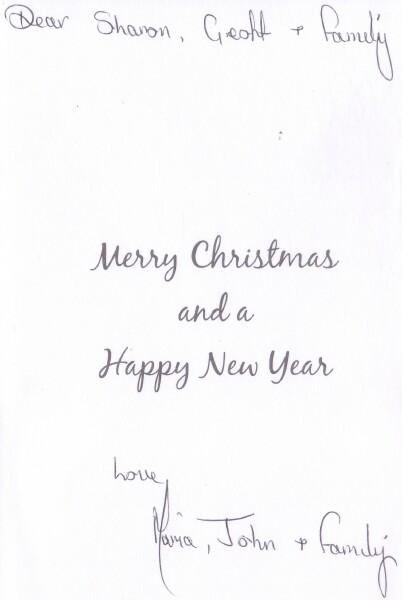 Dear Sharon, Geoff + Family
Merry Christmas
and a
Happy New Year
Love
Maria, John + Family